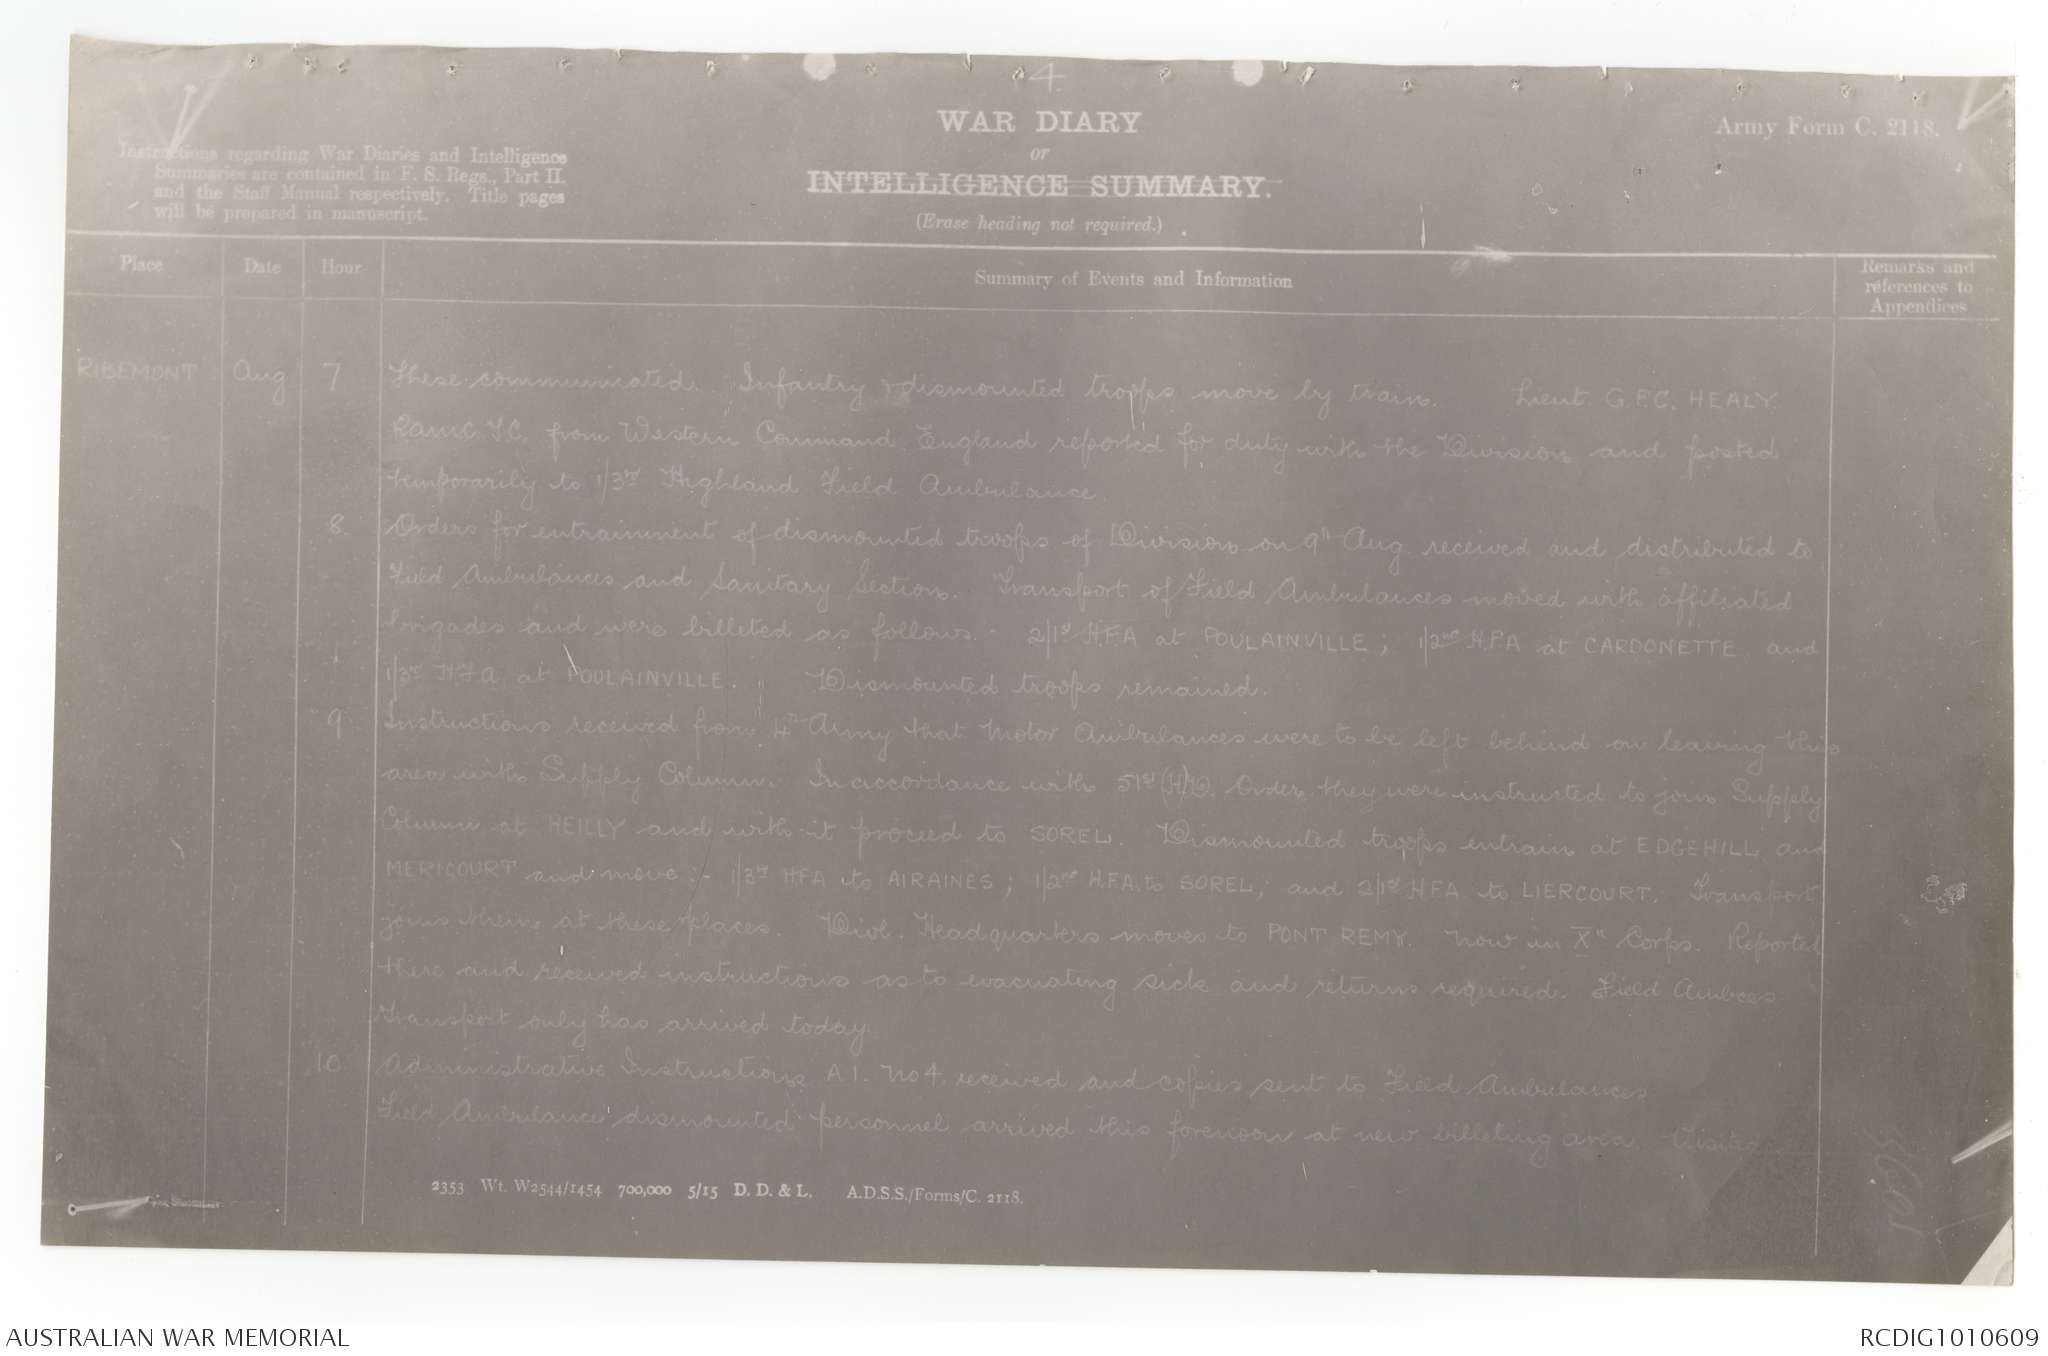 4.
WAR DIARY
or
INTELLIGENCE SUMMARY.
(Erase heading not required.)
Army Form C. 2118.
Instructions regarding War Diaries and Intelligence
Summaries are contained in F. S. Regs., Part II.
and the Staff Manual respectively. Title pages
will be prepared in manuscript.
Place Date Hour Summary of Events and Information Remarks and
references to
Appendices
RIBEMONT Aug 7 these communicated. Infantry & dismounted troops move by train. Lieut. G.F.C. HEALY
RAMC T.C. from Western Command England reported for duty with the Division and posted
temporarily to 1/3rd Highland Field Ambulance.
8. Orders for entrainment of dismounted troops of Division on 9th Aug. received and distributed to
Field Ambulances and Sanitary Section. Transport of Field Ambulances moved with affiliated
brigades and were billeted as follows:- 2/1st H.F.A at POULAINVILLE; 1/2nd H.F.A at CARDONETTE and
1/3rd H.F.A. at POULAINVILLE. Dismounted troops remained.
9 Instructions received from 4th Army that Motor Ambulances were to be left behind on leaving this
area with Supply Column. In accordance with 51st (H) D. Order they were instructed to join Supply
Column at HEILLY and with it proceed to SOREL. Dismounted troops entrain at EDGEHILL and
MERICOURT and move:- 1/3rd H.F.A to AIRAINES; 1/2nd H.F.A. to SOREL; and 2/1st H.F.A to LIERCOURT. Transport
joins them at these places. Divl. Headquarters moves to PONT REMY. Now in Xth Corps. Reported
there and received instructions as to evacuating sick and returns required. Field Ambces
transport only has arrived today.
10. Administrative Instructions A1. No 4. received and copies sent to Field Ambulances
Field Ambulance dismounted personnel arrived this forenoon at new billeting area. Visited
2353 Wt. W2544/1454 700,000 5/15 D. D. & L. A.D.S.S./Forms/C. 2118.
AUSTRALIAN WAR MEMORIAL
RCDIG1010609